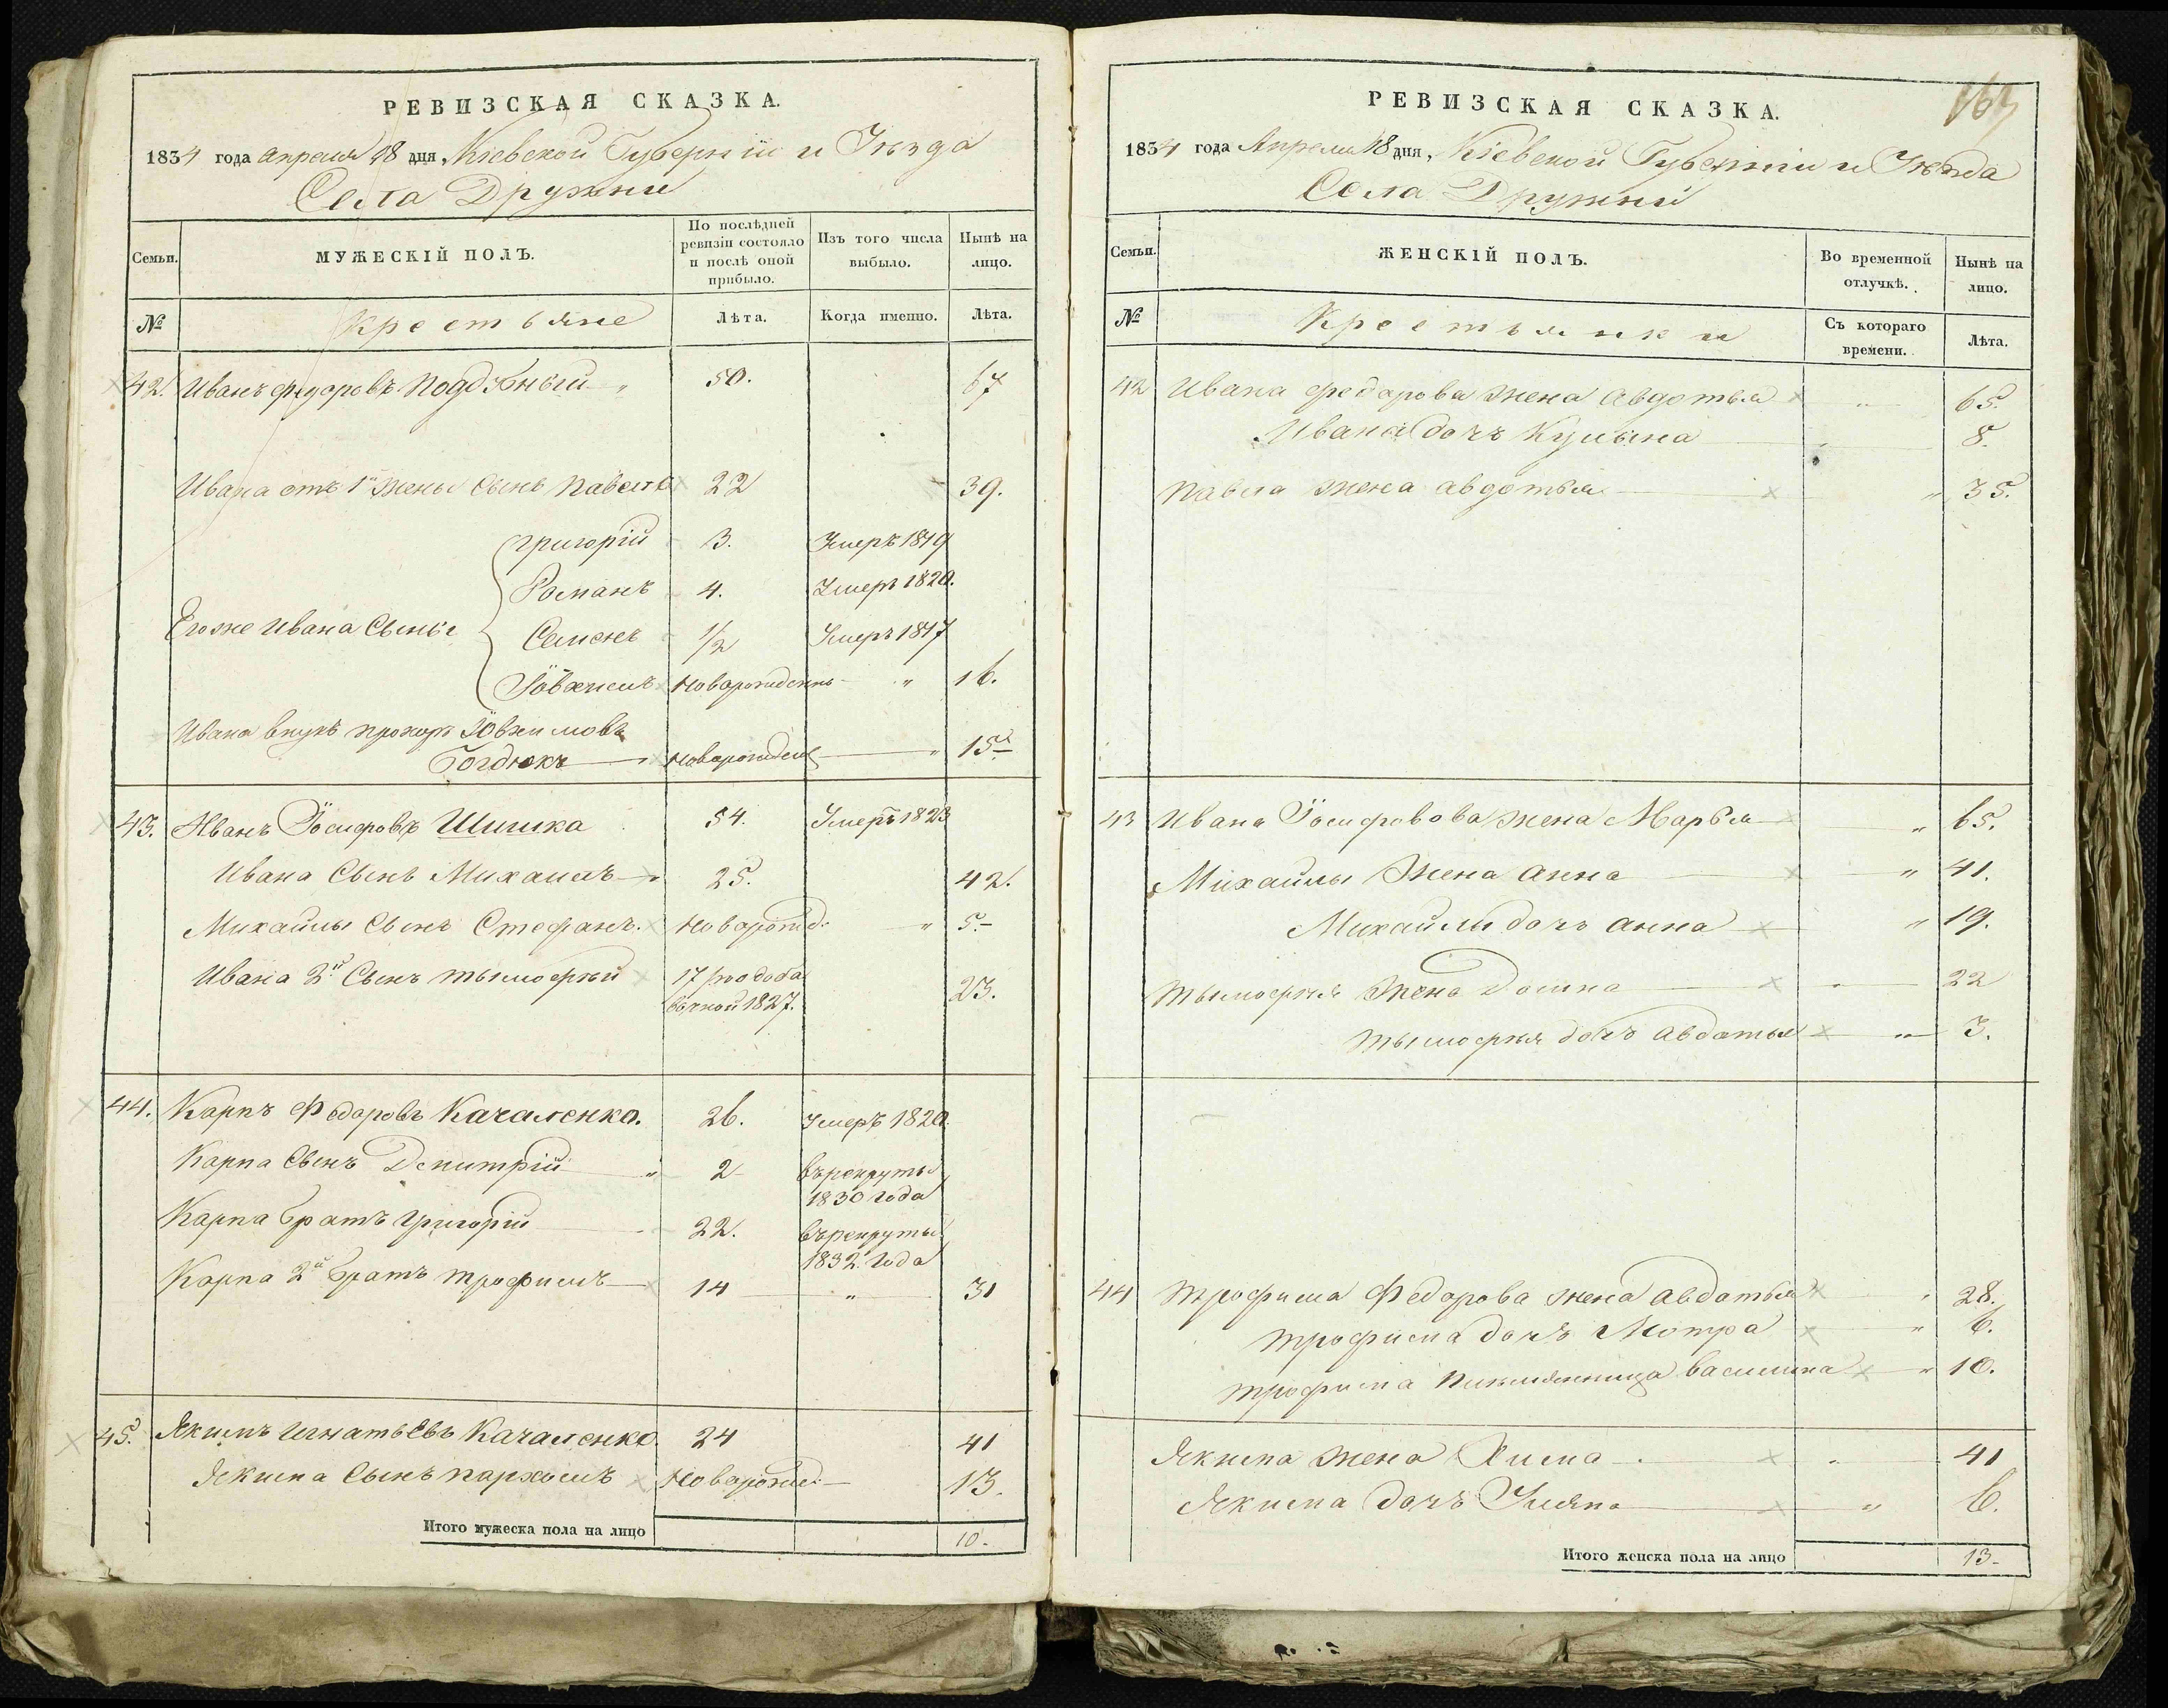 РЕВИЗСКАЯ СКАЗКА.
1834 года апреля 18 дня, Кіевской Губерніи и Уѣзда
Села Дружни
Семьи.
МУЖЕСКІЙ ПОЛЪ.
По послѣдней
ревизіи состояло
и послѣ оной
прибыло.
Изъ того числа
выбыло.
Нынѣ на
лицо.
№
Крестьяне
Лѣта.
Когда именно.
Лѣта.
42. Иванъ Федоровъ 50. 67
Ивана отъ 1й жены Сынъ Павелъ 22 39.
Григорій 3. Умеръ 1819
Романъ 4. Умеръ 1820.
Егоже Ивана Сыны Семенъ 1/2 Умеръ 1817
Новорожденъ " 16.
Ивана внукъ прохоръ
Богдюкъ Новорожден " 15
43. Иванъ Іосифовъ Шишка 54. Умеръ 1823
Ивана Сынъ Михаилъ 25. 42.
Михайлы Сынъ Стефанъ. Новорожд. " 5.
Ивана 2й Сынъ тымофѣй 17 23.
1827.
44. Карпъ Федоровъ Качаленко. 26. Умеръ 1820.
Карпа Сынъ Дмитрій " 2 врекруты
1830 года
Карпа братъ григорій 22. врекруты
1832 года
Карпа 2й братъ трофимъ 14 " 31
45. Якимъ Игнатьевъ Качаленко. 24 41
Якима Сынъ пархомъ Новорожд. 13.
Итого мужеска пола на лицо 10.
РЕВИЗСКАЯ СКАЗКА.
1834 года Апреля 18 дня, Кіевской Губерніи и Уѣзда
Села Дружни
Семьи.
ЖЕНСКІЙ ПОЛЪ.
Во временной
отлучкѣ.
Нынѣ на
лицо.
№
Крестьянки
Съ котораго
времени.
Лѣта.
42 Ивана федорова жена Авдотья " 65.
Ивана дочъ Кулына " 8.
Павла жена авдотья " 35.
43 Ивана Іосифовова жена Марья " 65.
Михайлы жена анна " 41.
Михайлы дочъ анна " 19.
тымофѣя жена Домна " 22
тымофѣя дочъ авдотья " 3.
44 трофима Федорова жена авдотья " 28.
трофима дочъ Мотра " 6.
трофима племянница василина " 10.
Якима жена Хима " 41
Якима дочъ Уляна " 6.
Итого женска пола на лицо 13